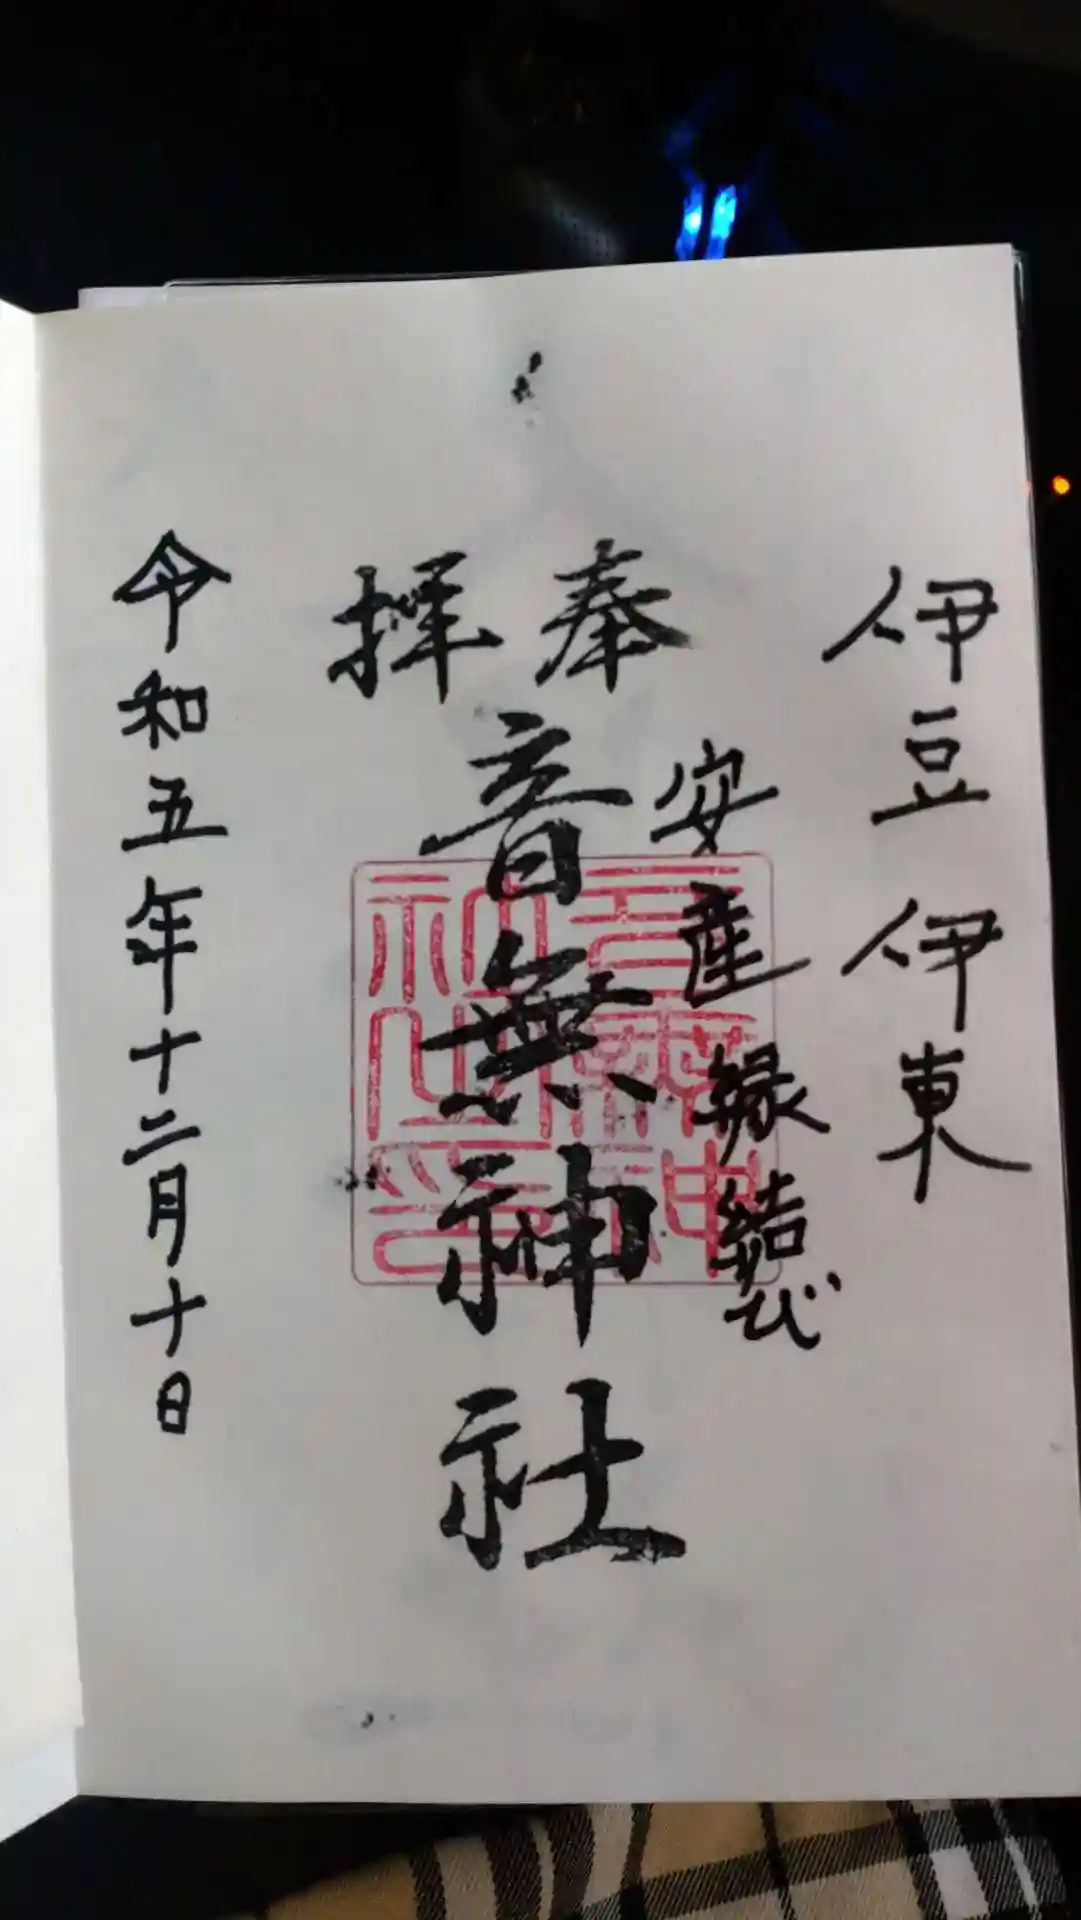 伊豆伊東
奉拝
安産縁結び
音無神社
令和五年十二月十日
音無神社之印